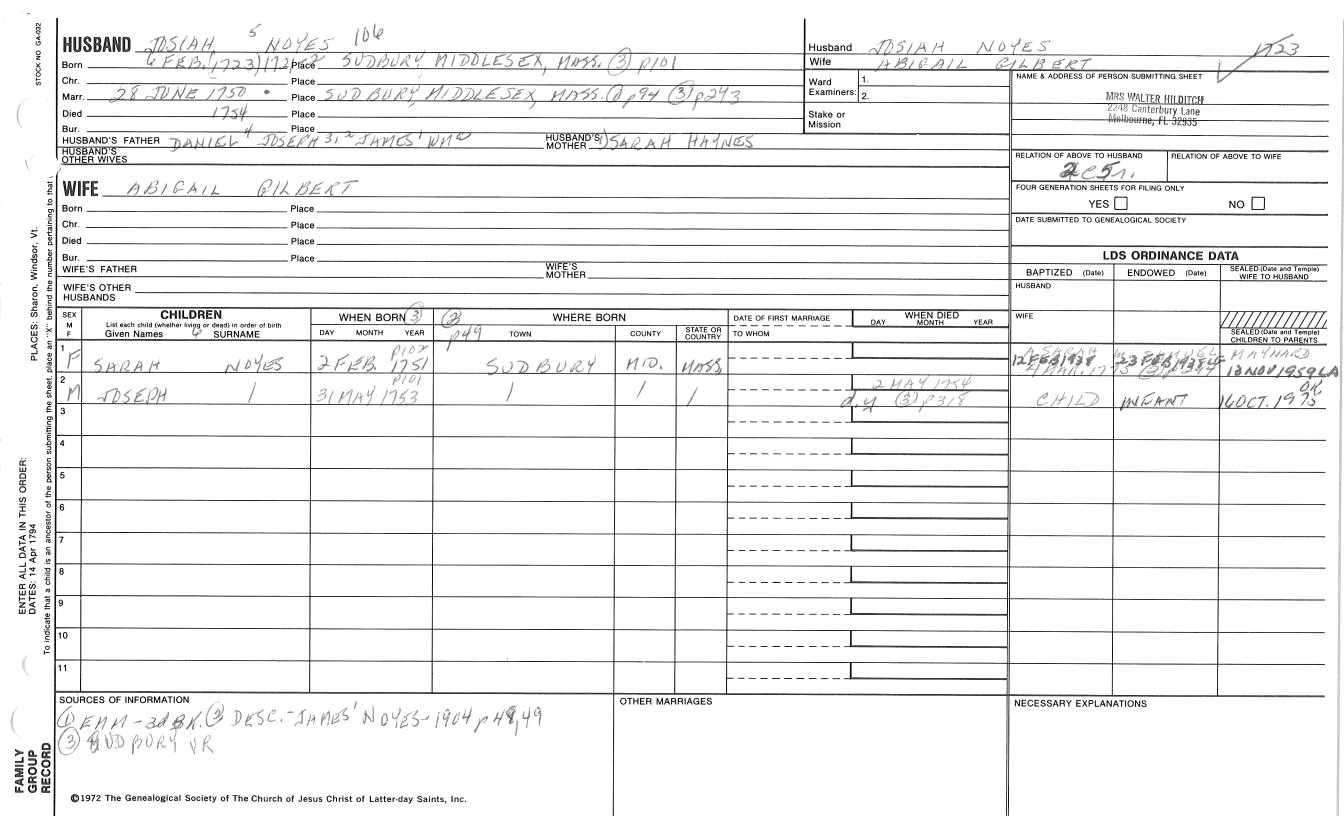 STOCK NO GA-032
HUSBAND JOSIAH 5 NOYES 106
Born 6 FEB. (1723) 1721/2 Place SUDBURY, MIDDLESEX, MASS. (3) p101
Chr. Place
Marr. 28 JUNE 1750 Place SUDBURY, MIDDLESEX, MASS. (1) p94 (3) p243
Died 1754 Place
Bur. Place
HUSBAND'S FATHER DANIEL 4 JOSEPH 3, 2 JAMES' WM HUSBAND'S MOTHER SARAH HAYNES
HUSBAND'S OTHER WIVES
Husband JOSIAH NOYES 1723
Wife ABIGAIL GILBERT
Ward Examiners: 1.
2.
Stake or Mission
NAME & ADDRESS OF PERSON SUBMITTING SHEET
MRS WALTER HILDITCH
2248 Canterbury Lane
Melbourne, FL 32935
RELATION OF ABOVE TO HUSBAND RELATION OF ABOVE TO WIFE
2c5r.
FOUR GENERATION SHEETS FOR FILING ONLY
YES NO
DATE SUBMITTED TO GENEALOGICAL SOCIETY
WIFE ABIGAIL GILBERT
Born Place
Chr. Place
Died Place
Bur. Place
WIFE'S FATHER WIFE'S MOTHER
WIFE'S OTHER HUSBANDS
LDS ORDINANCE DATA
BAPTIZED (Date) ENDOWED (Date) SEALED (Date and Temple) WIFE TO HUSBAND
HUSBAND
WIFE
SEALED (Date and Temple) CHILDREN TO PARENTS
SEX M F
CHILDREN
List each child (whether living or dead) in order of birth
Given Names 6 SURNAME
WHEN BORN (3)
DAY MONTH YEAR
(2) p49
WHERE BORN
TOWN COUNTY STATE OR COUNTRY
DATE OF FIRST MARRIAGE
TO WHOM
WHEN DIED
DAY MONTH YEAR
1 F SARAH NOYES 2 FEB. 1751 p102 SUDBURY MID. MASS
12 FEB 1938 23 FEB 1938 MAYNARD
13 NOV 1959 LA
2 M JOSEPH / 31 MAY 1753 p101 / / / 2 MAY 1754
d.y (3) p318 CHILD INFANT 16 OCT. 1975 OK
3
4
5
6
7
8
9
10
11
SOURCES OF INFORMATION
(1) EHM - 3d BK. (2) DESC. - JAMES' NOYES - 1904 p48,49
(3) SUDBURY VR
OTHER MARRIAGES
NECESSARY EXPLANATIONS
©1972 The Genealogical Society of The Church of Jesus Christ of Latter-day Saints, Inc.
FAMILY GROUP RECORD
ENTER ALL DATA IN THIS ORDER:
DATES: 14 Apr 1794
PLACES: Sharon, Windsor, Vt.
To indicate that a child is an ancestor of the person submitting the sheet, place an "X" behind the number pertaining to that